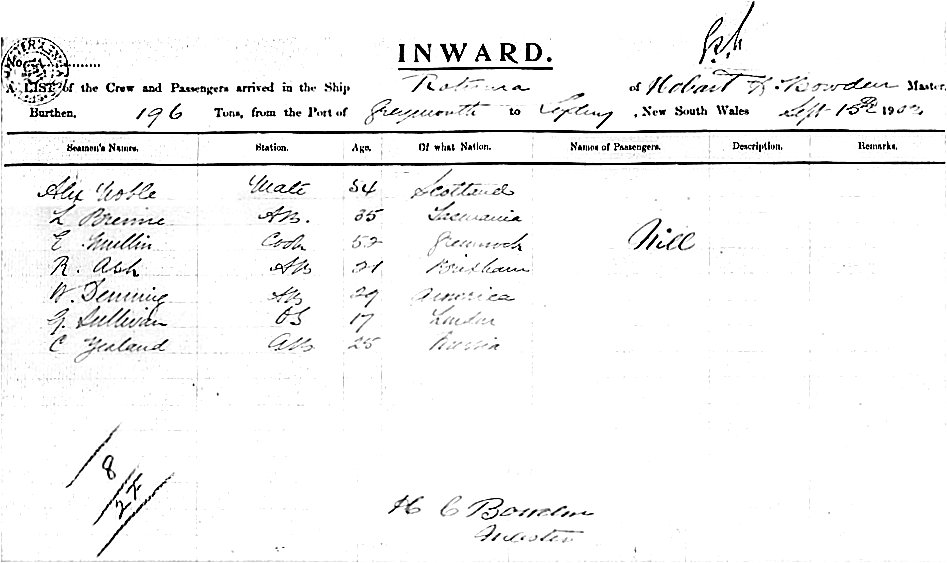 INWARD.
No.
A LIST of the Crew and Passengers arrived in the Ship Rotuma of Hobart H. Bowden Master,
Burthen, 196 Tons, from the Port of Greymouth to Sydney, New South Wales Sept 15th 190
Seamen's Names. Station. Age. Of what Nation. Names of Passengers. Description. Remarks.
Alex Noble Mate 54 Scotland
L AB. 35 Tasmania
E. Mullin Cook 52 Greenock Nill
R. Ash AB 21 Brixham
W. Denning AB 29 America
G. Sullivan OS 17 London
C Yealand AB 25 Russia
8
24
H C Bowden
Master